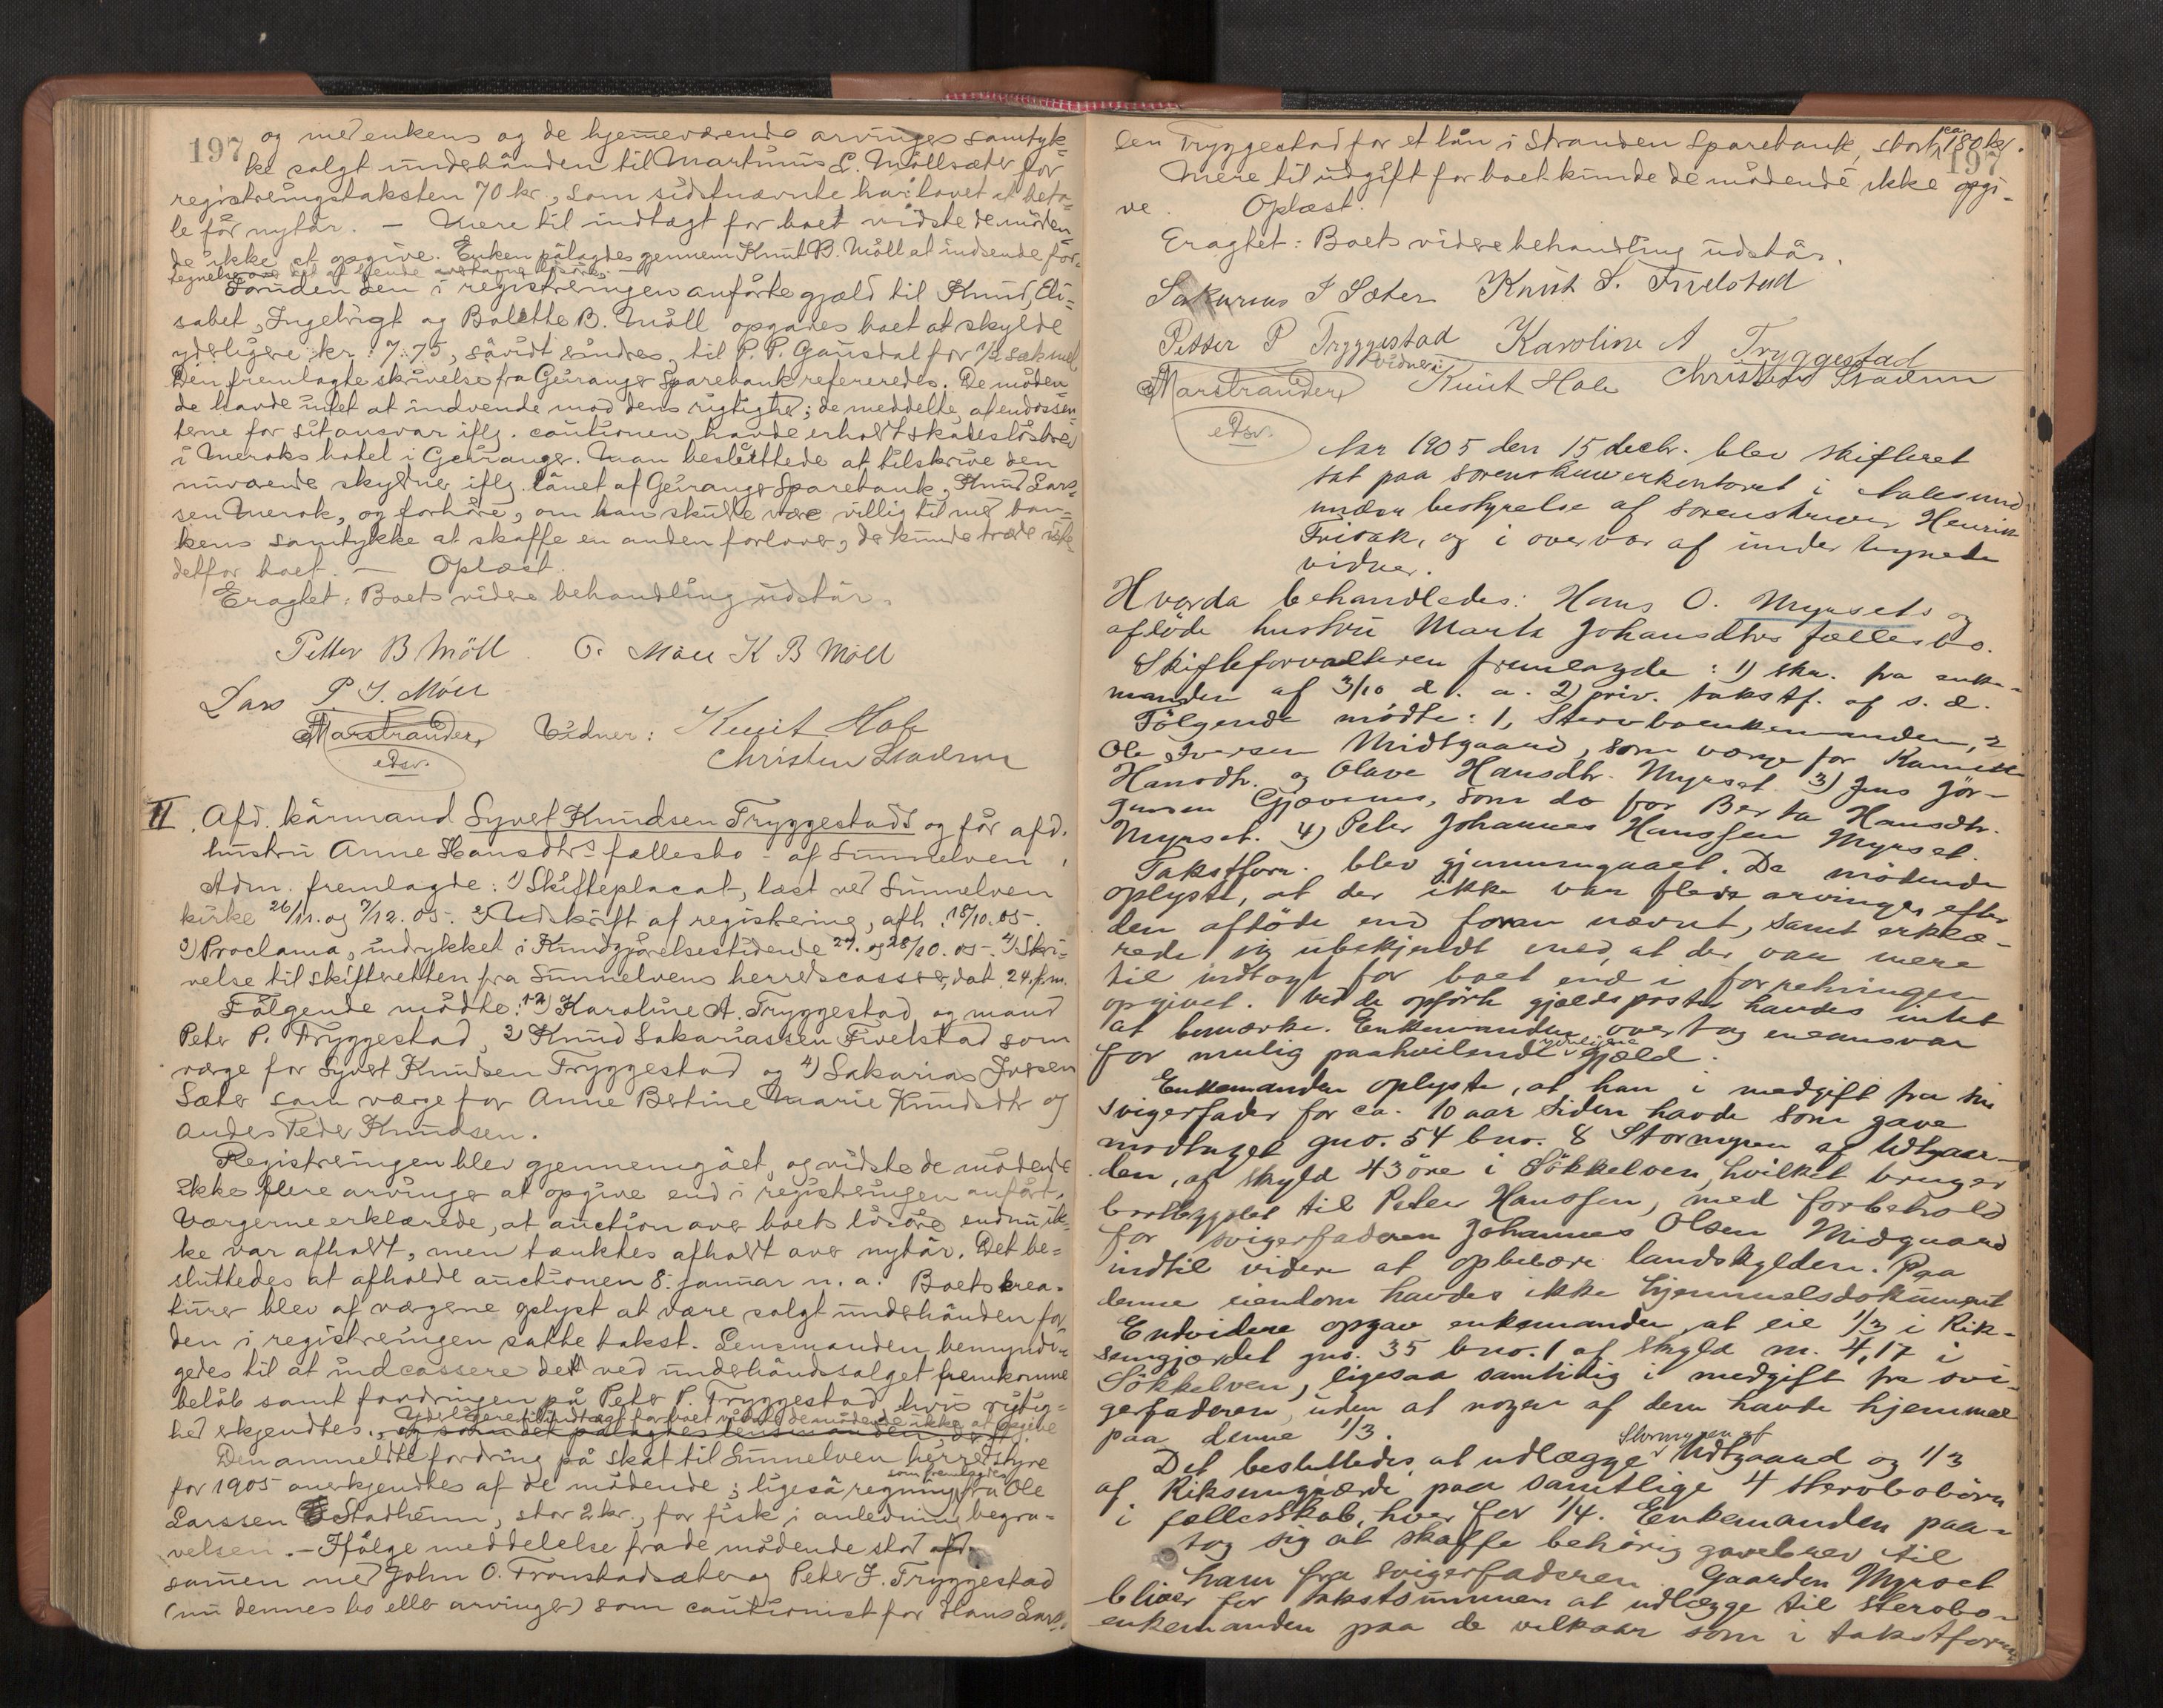 197
og med enkens og de hjemeværende arvinges samtyk-
ke solgt underhånden til Martinus L. Möllsæter for
registreringstaksten 70 kr., som sidstnævnte har lovet at beta-
le før nytår. — Mere til indtægt for boet vidste de möden-
de ikke at opgive. Enken pålagdes gjennem Knut B. Möll at indsende for-
tegnelse over
Foruden den i registreringen anførte gjæld til Knud, Eli-
sabet, Ingebrigt og Bolette B. Möll opgaves boet at skylde
yderligere kr. 7.75, såvidt erindres, til P. P. Gausdal for 1/2 sæk mel
Den fremlagte skrivelse fra Geiranger Sparebank refereredes. De möden-
de havde intet at indvende mod dens rigtighed; de meddelte, at endossen-
terne for sit ansvar iflg. cautionen, havde erholdt skadeslösbrev
i Meroks hotel i Geiranger. Man besluttede at tilskrive den
nuværende skyldner iflg. lånet af Geiranger Sparebank, Knud Lars-
sen Merok, og forhøre, om han skulde være villig til med ban-
kens samtykke at skaffe en anden forlover, der kunde træde iste-
detfor boet. — Oplæst.
Eragtet: Boets videre behandling udstår.
Petter B Möll O. Möll K B Möll
Lars P. I. Möll
Marstrander Vidner: Knut Hole
edsv. Christen Stadum
II. Afd. kårmand Syvert Knudsen Tryggestads og før afd.
hustru Anne Hansdtrs fællesbo - af Sunnelven,
Adm. fremlagde: 1) Skifteplacat, læst ved Sunnelven
kirke 26/11. og 3/12. 05. 2) Udskrift af registrering, afh. 18/10. 05.
3) Proclama, indrykket i Kundgjörelsestidende 27. og 28/10. 05. 4) Skri-
velse til skifteretten fra Sunnelvens herredscasserer, dat. 24. f. m.
Følgende mødte: 1-2) Karoline A. Tryggestad og mand
Peter P. Tryggestad, 3) Knud Sakariassen Fivelstad som
værge for Syvert Knudsen Tryggestad og 4) Sakarias Iversen
Sæter som værge for Anne Bertine Marie Knudsdtr og
Anders Peder Knudsen.
Registreringen blev gjennemgået, og vidste de mødende
ikke flere arvinger at opgive end i registreringen anført.
Værgerne erklærede, at auction over boets løsøre endnu ik-
ke var afholdt, men tænktes afholdt over nytår. Det be-
sluttedes at afholde auctionen 8. januar n. a. Boets krea-
turer blev af værgerne oplyst at være solgt underhånden for
den i registreringen satte takst. Lensmanden bemyndi-
gedes til at indcassere det ved underhåndsalget fremkomne
beløb samt fordringen på Peter P. Tryggestad, hvis rigtig-
Yderligere til indtægt for boet vidste de mødende ikke at opgive
hed erkjendtes. og som det pålagdes lensmanden,
Den anmeldte fordring på skat til Sunnelven herredstyre
som fremlagdes
for 1905 anerkjendtes af de mødende; ligeså regning fra Ole
Larssen Stadheim, stor 2 kr., for fisk i anledning begra-
velsen. — Ifølge meddelelse fra de mødende stod afd.
sammen med John O. Tronstadsæter og Peter J. Tryggestad
(nu dennes bo eller arvinger) som cautionist for Hans Lars-
197
sen Tryggestad for et lån i Stranden Sparebank, stort ca. 180 kr.
Mere til udgift for boet kunde de mødende ikke opgi-
ve. Oplæst.
Eragtet: Boets videre behandling udstår.
Sakarias I Sæter Knut S. Fivelstad
Petter P Tryggestad Karoline A Tryggestad
Marstrander Vidner: Knut Hole Christen Stadum
edsv.
Aar 1905 den 15 decbr. blev skifteret
sat paa sorenskriverkontoret i Aalesund
under bestyrelse af sorenskriver Henrik
Frisak, og i overvær af undertegnede
vidner.
Hvorda behandledes: Hans O. Myrsets og
afdøde hustru Marta Johansdtrs fællesbo.
Skifteforvalteren fremlagde: 1) skr. fra enke-
manden af 3/10 d. a. 2) priv. takstf. af s. d.
Følgende mødte: 1, Stervboenkemanden, 2
Ole Iversen Midtgaard, som værge for Kamilla
Hansdtr. og Olave Hansdtr. Myrset. 3) Jens Jør-
gensen Gjævenes, som do for Berta Hansdtr.
Myrset. 4) Peter Johannes Hanssen Myrset.
Takstforr. blev gjennemgaaet. De mødende
oplyste, at der ikke var flere arvinger efter
den afdøde end foran nævnt, samt erklæ-
rede sig ubekjendt med, at der var mere
til indtægt for boet end i forretningen
opgivet. Ved de opførte gjældsposter havdes intet
at bemærke. Enkemanden overtog eneansvar
for mulig paahvilende yderligere gjæld.
Enkemanden oplyste, at han i medgift fra sin
svigerfader for ca. 10 aar siden havde som gave
modtaget gno. 54 bno. 8 Stormyren af Udtgaar-
den, af skyld 43 öre i Søkkelven, hvilket bruger
bortbygslet til Peter Hanssen, med forbehold
for svigerfaderen Johannes Olsen Midgaard
indtil videre at opbebære landskylden. Paa
denne eiendom havdes ikke hjemmelsdokument
Endvidere opgav enkemanden at eie 1/3 i Rik-
semgjærdet gno. 35 bno. 1 af skyld m. 4,17 i
Søkkelven, ligesaa samtidig i medgift fra svi-
gerfaderen, uden at nogen af dem havde hjemmel
paa denne 1/3.
Stormyren af
Det besluttedes at udlægge Udtgaard og 1/3
af Riksemgjærde paa samtlige 4 stervbobörn
i fællesskab, hver for 1/4. Enkemanden paa-
tog sig at skaffe behörig gavebrev til
ham fra svigerfaderen. Gaarden Myrset
bliver for takstsummen at udlægge til stervbo-
enkemanden paa de vilkaar som i takstforr.